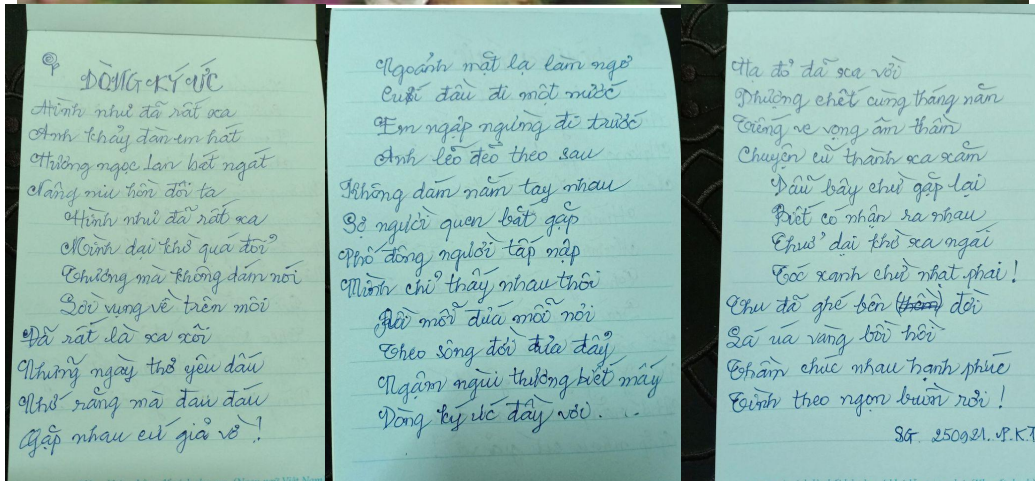 DÒNG KÝ ỨC
Hình như đã rất xa
Anh khảy đàn em hát
Hương ngọc lan bát ngát
Nâng niu hồn đôi ta
Hình như đã rất xa
Mình dại khờ quá đỗi
Thương mà không dám nói
Lời vụng về trên môi
Đã rất là xa xôi
Những ngày thơ yêu dấu
Nhớ rằng mà đau đáu
Gặp nhau cứ giả vờ!
Ngoảnh mặt lạ làm ngơ
Cuối đầu đi một nước
Em ngập ngừng đi trước
Anh lẽo đẽo theo sau
Không dám nắm tay nhau
Sợ người quen bắt gặp
Phố đông người tấp nập
Mình chỉ thấy nhau thôi
Rồi mỗi đứa mỗi nơi
Theo sông đời đưa đẩy
Ngậm ngùi thương biết mấy
Dòng ký ức đầy vơi...
Hạ đỏ đã xa vời
Phượng chết cùng tháng năm
Tiếng ve vọng âm thầm
Chuyện cũ thành xa xăm
Dẫu bây chừ gặp lại
Biết có nhận ra nhau
Thuở dại khờ xa ngái
Tóc xanh chừ nhạt phai!
Thu đã ghé bên đời
Lá úa vàng bồi hồi
Thầm chúc nhau hạnh phúc
Tình theo ngọn buồn rơi!
SG. 250921. P.K.T